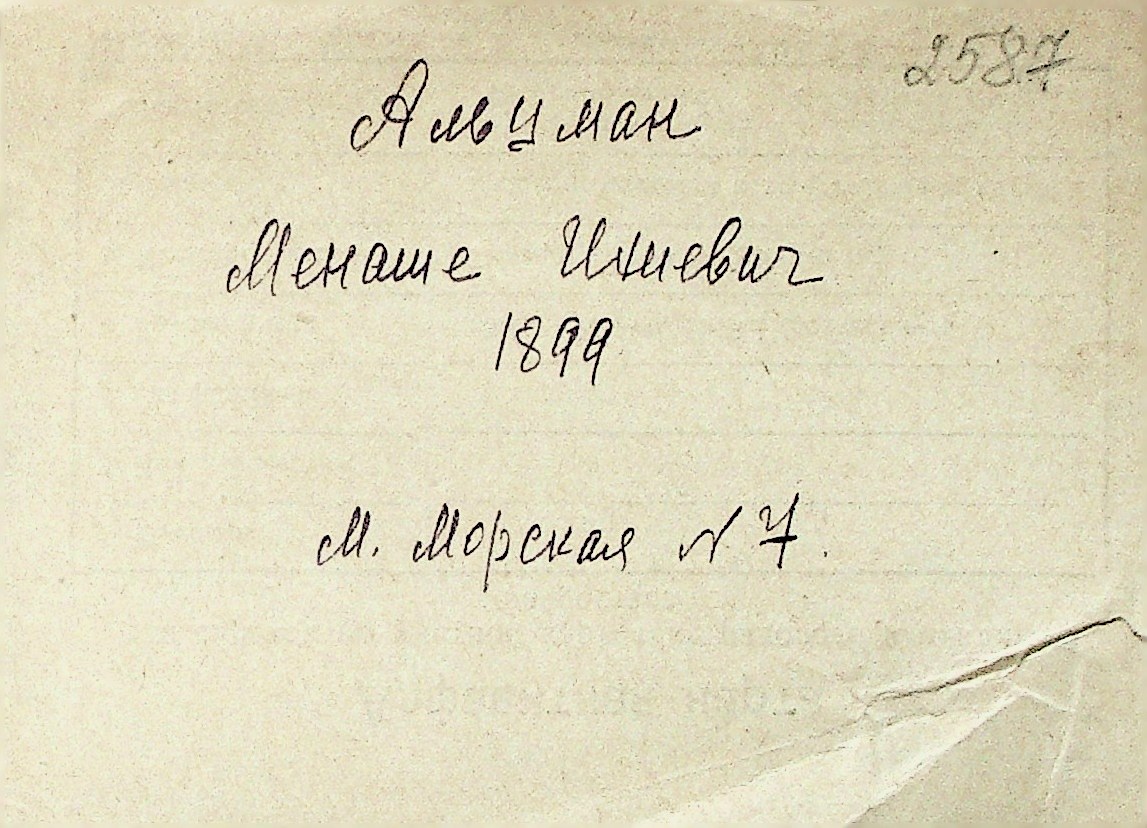 2587
Альцман
Менаше Ихиевич
1899
М. Морская N 7.